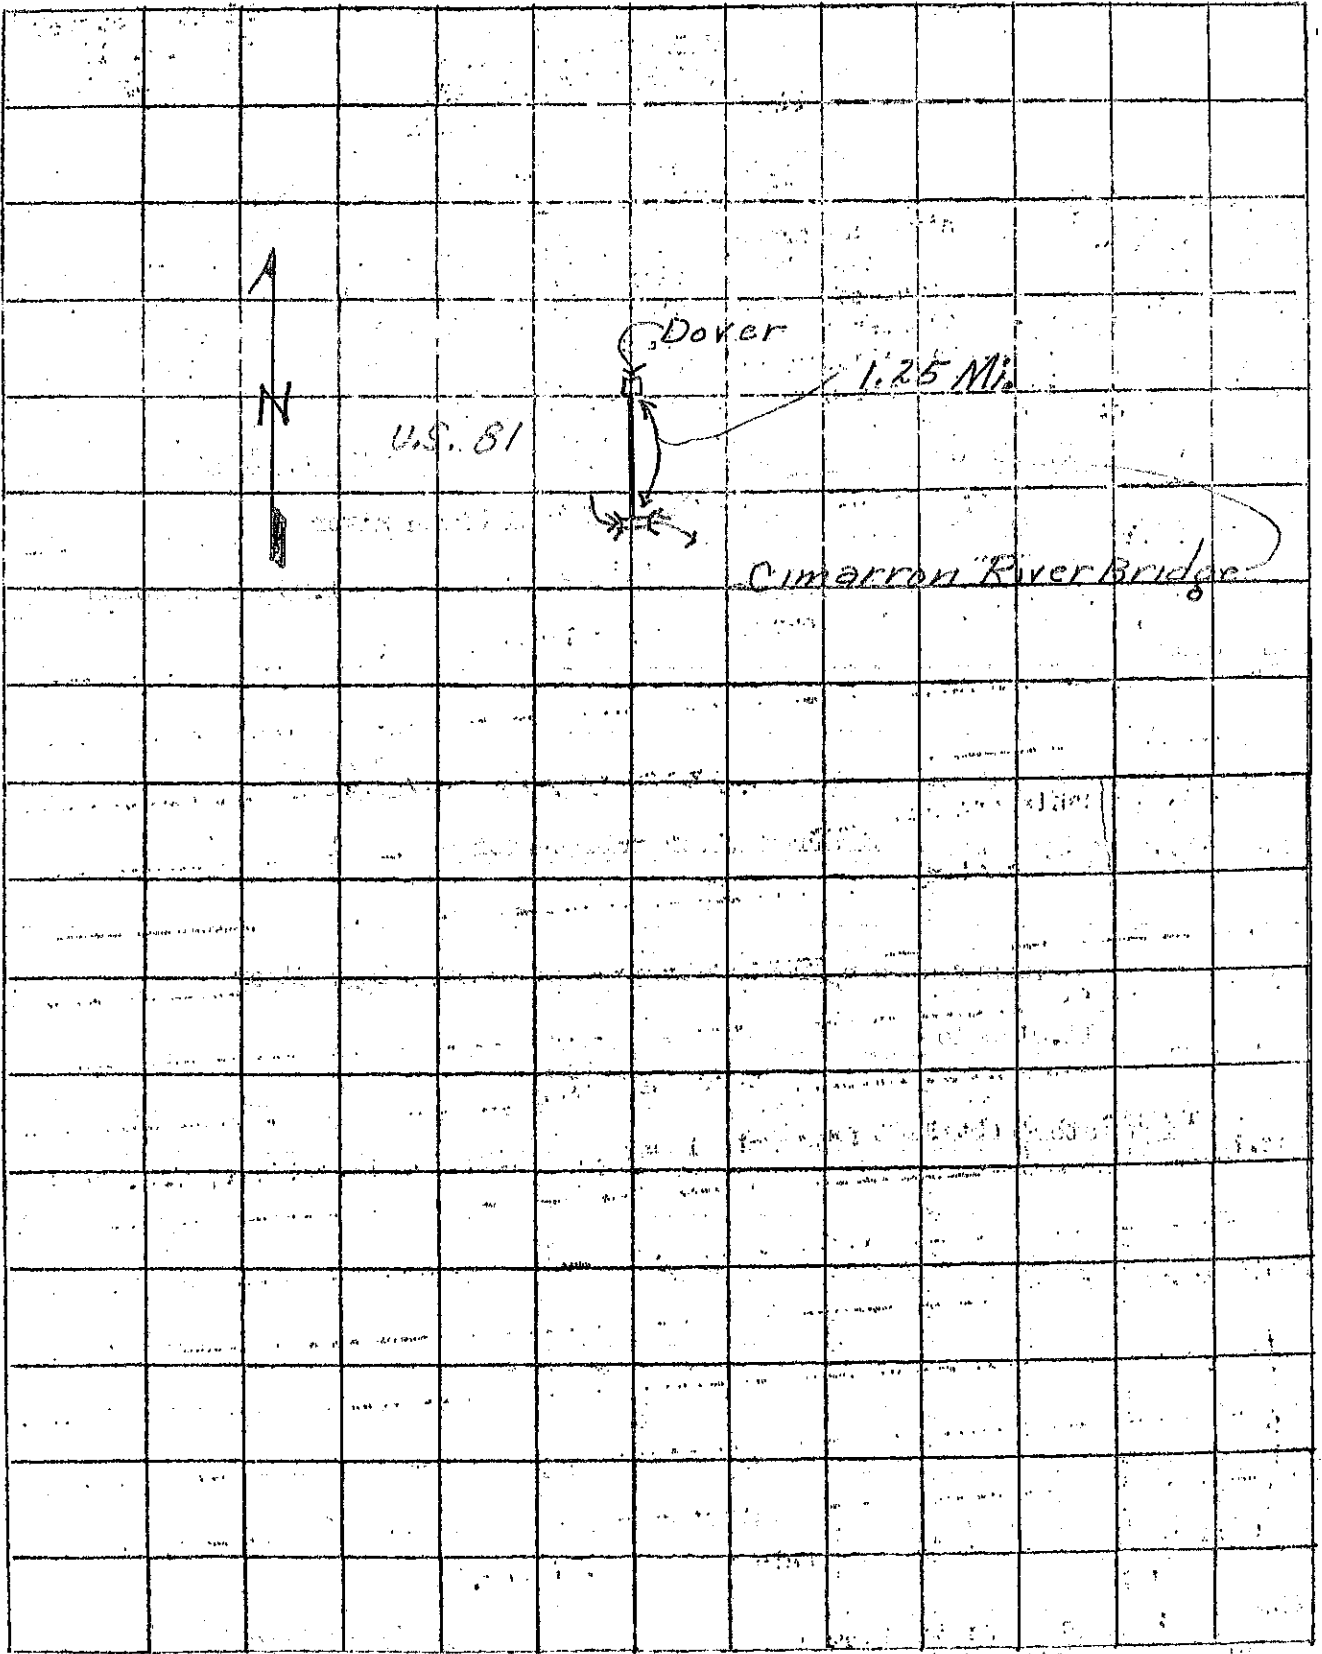 Dover
1.25 Mi.
N
U.S. 81
Cimarron River Bridge